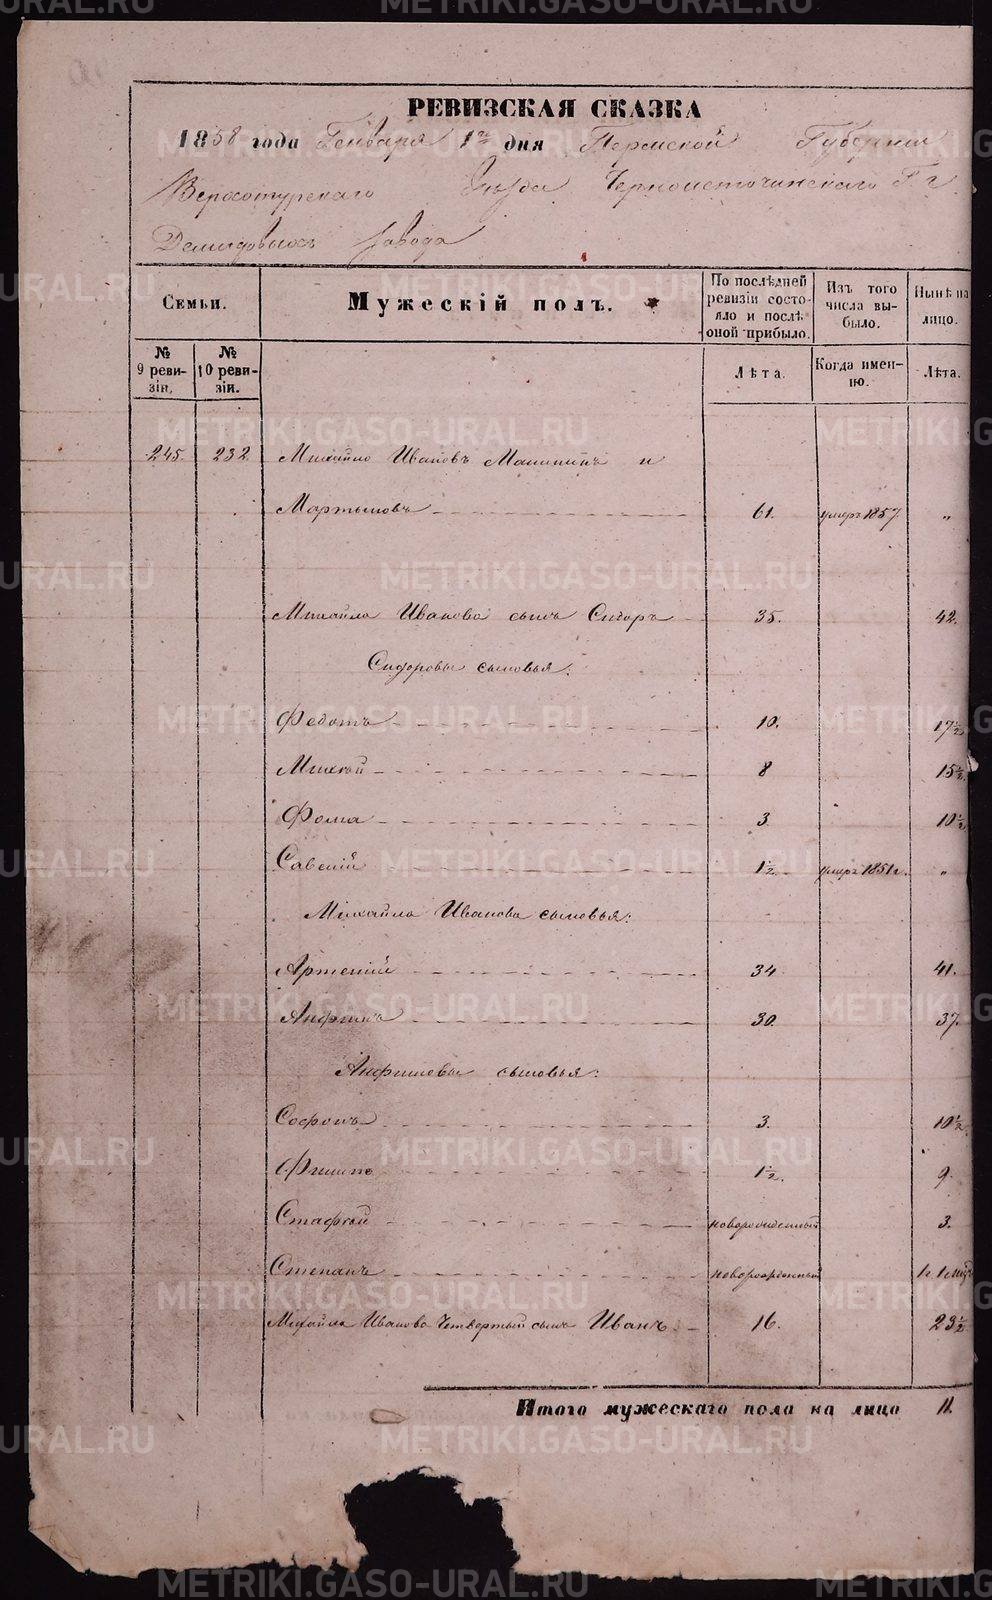 РЕВИЗСКАЯ СКАЗКА
1858 года Генваря 1го дня Пермской Губернии
Верхотурскаго Уезда Черноисточинскаго Г. г.
Демидовыхъ завода
Семьи.
Мужескій полъ.
По послѣдней ревизіи состояло и послѣ оной прибыло.
Изъ того числа выбыло.
Нынѣ на лицо.
№ 9 ревизіи.
№ 10 ревизіи.
Лѣта.
Когда именно.
Лѣта.
245. 232. Михайло Ивановъ Малининъ и
Мартыновъ 61. умеръ 1857 "
Михайла Иванова сынъ Сидоръ 35. 42.
Сидоровы сыновья:
Федотъ 10. 17½
Михѣй 8 15½
Фома 3 10½
Савелій 1½ умеръ 1851 г. "
Михайла Иванова сыновья:
Артемій 34 41.
Анфимъ 30. 37.
Анфимовы сыновья:
Софонъ 3. 10½
Филипъ 1½. 9
Стафѣй новорожденный 3.
Степанъ новорожденный 1 г. 1 мѣс.
Михайла Иванова четвертый сынъ Иванъ 16. 23½
Итого мужескаго пола на лицо 11.
METRIKI.GASO-URAL.RU